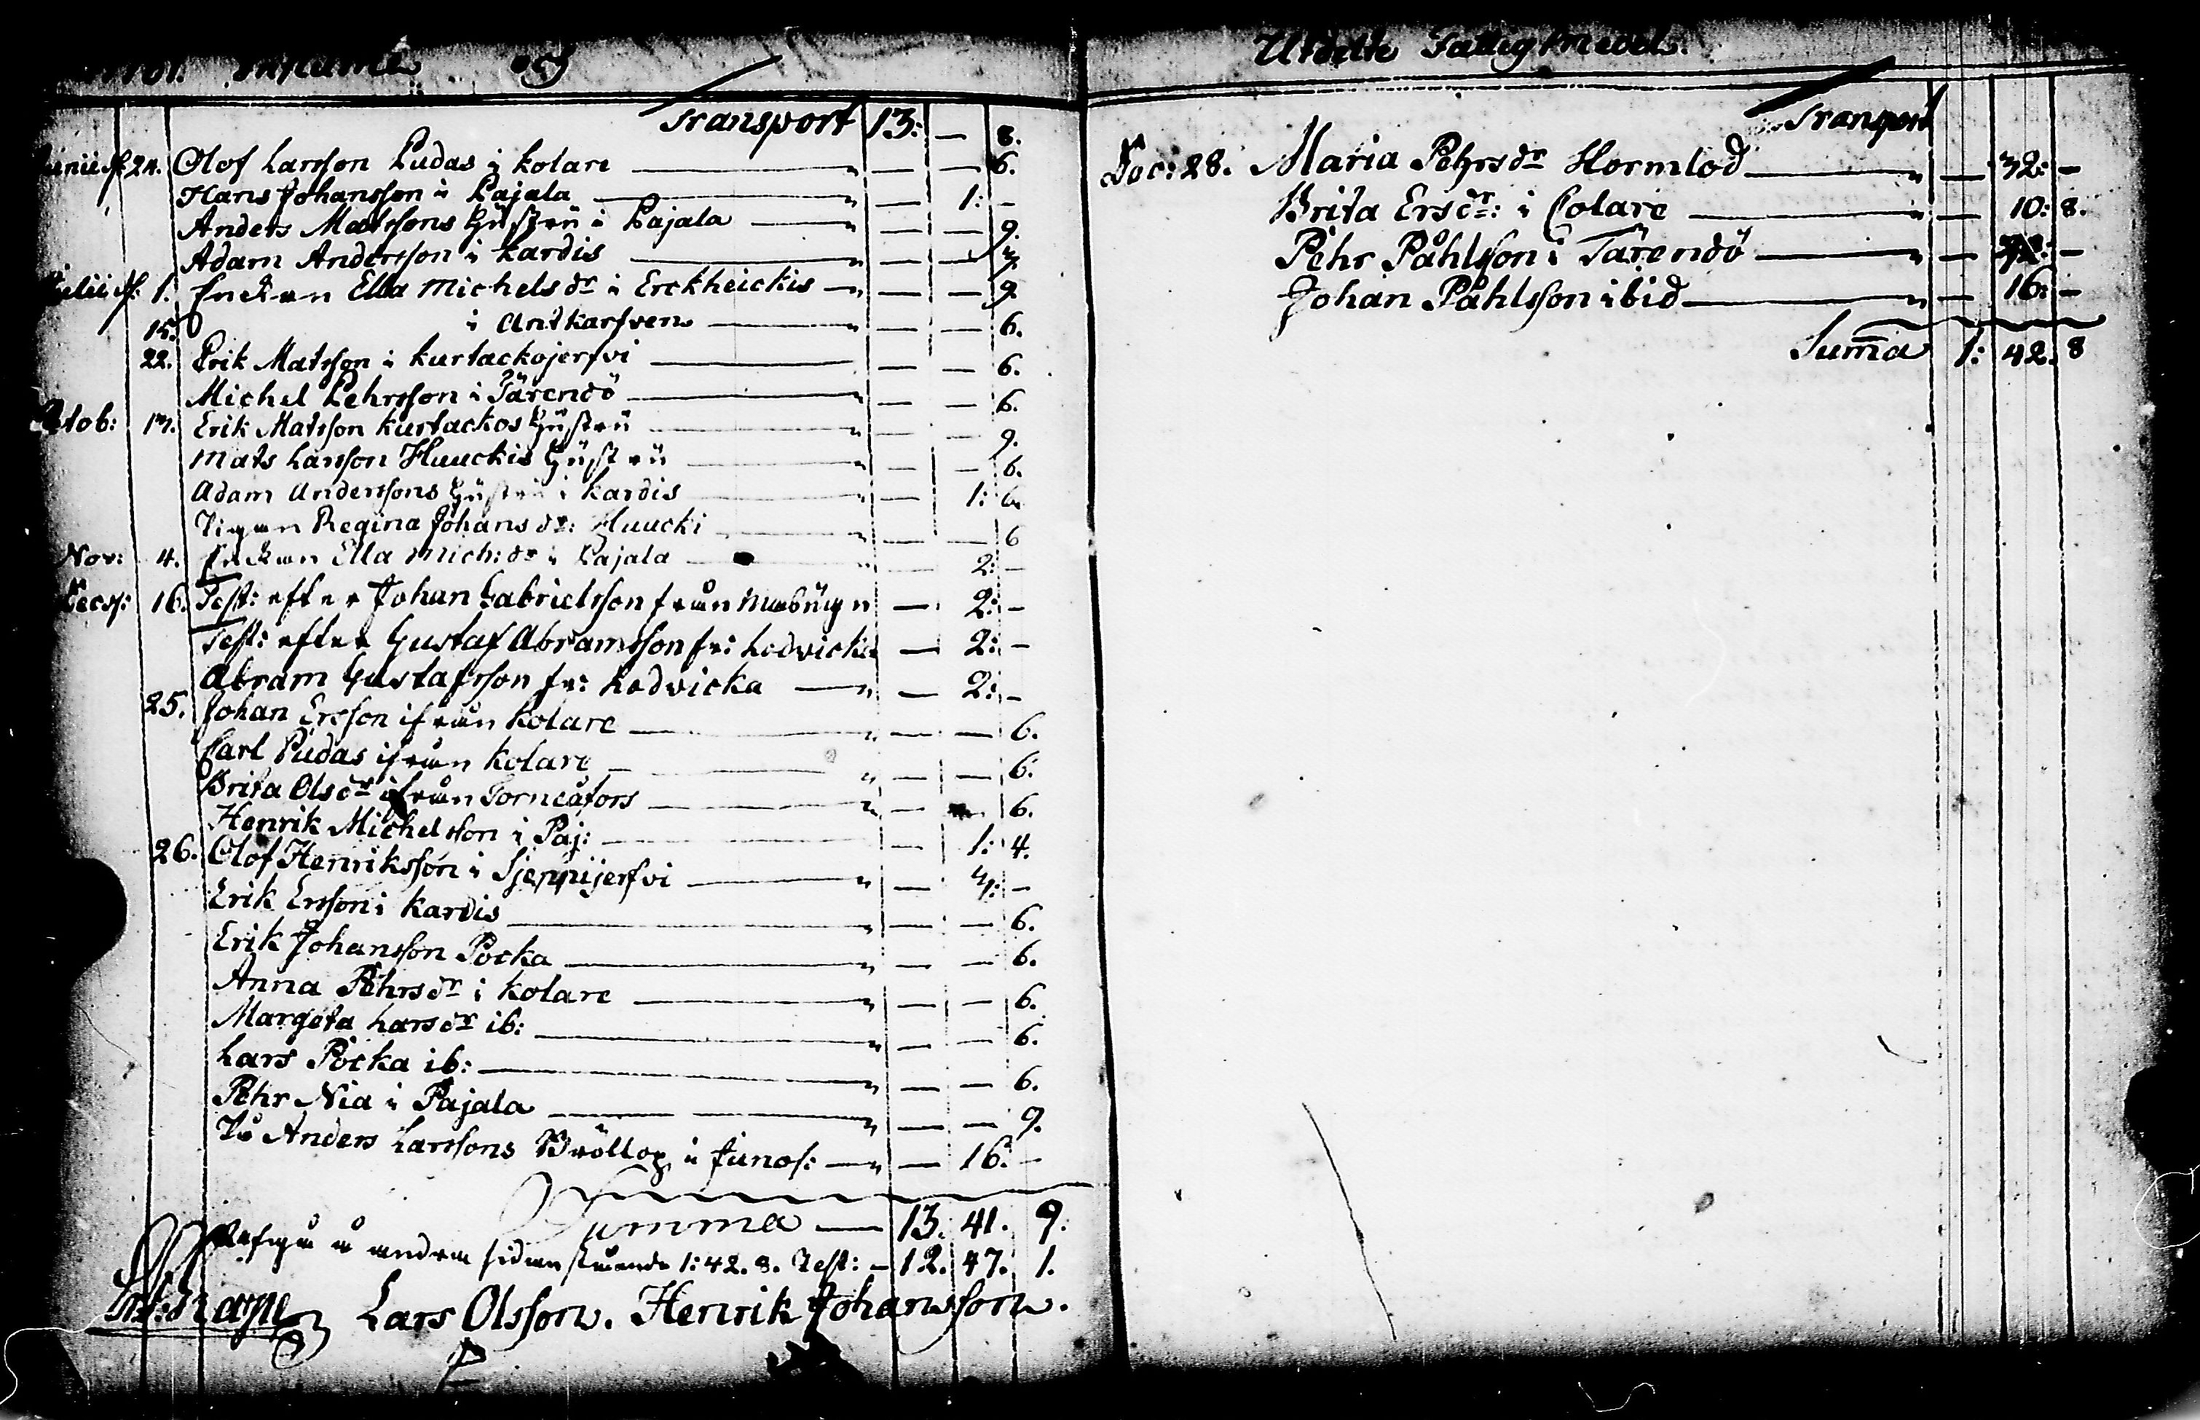 Utdelte Fattig Medel.
Transport 13: — 8.
Junii d. 24. Olof Larsson Pudas i Kolare " — — 6.
Hans Johansson i Pajala " — 1: —
Anders Matssons i Pajala " — — 9.
Adam Andersson i Kardis " — —
Julii d. 1. Enkan Ella Michelsdr i Erckheickis — " — — 9.
15. i Antkarfven — — 6.
22. Erik Matsson i Kurtackojerfvi — — 6.
Michel Pehrsson i Tärendö " — — 6.
Octob: 17. Erik Matsson Kurtackos Hustru " — — 9.
Mats Larsson Huuckis Hustru " — — 6.
Adam Anderssons Hustru i Kardis " — 1: 6.
Pigan Regina Johansdr: Huucki " — — 6
Nov: 4. Enckan Ella Mich:dr i Pajala " — 2: —
Decs: 16. Test: efter Johan Gabrielsson från — 2: —
Test: efter Gustaf Abramsson fr: Lodvicka — 2: —
Abram Gustafsson fr: Lodvicka — " — 2: —
25. Johan Ersson ifrån Kolare " — — 6.
Carl Pudas ifrån Kolare " — — 6.
Brita Olsdr ifrån Torneåfors " — 6.
Henrik Michelsson i Paj: — 1: 4.
26. Olof Henriksson i Sjeppijerfvi " — 4: —
Erik Ersson i Kardis " — — 6.
Erik Johansson Pocka " — — 6.
Anna Pehrsdr i Kolare " — — 6.
Margeta Larsdr ib: " — — 6.
Lars Pocka ib: " — — 6.
Pehr Nia i Pajala " — — 9.
På Anders Larssons Bröllop i Junos: — " — 16. —
Summa — 13. 41. 9.
å andra sidan stående 1:42.8. Rest: — 12. 47. 1.
Lars Olsson. Henrik Johansson.
Transport
Dec: 28. Maria Pehrsdr Hormlod " — 32: —
Brita Ersdr: i Colare " — 10: 8.
Pehr Påhlsson i Tärendö " — 32: —
Johan Påhlsson ibid " — 16: —
Summa 1: 42. 8